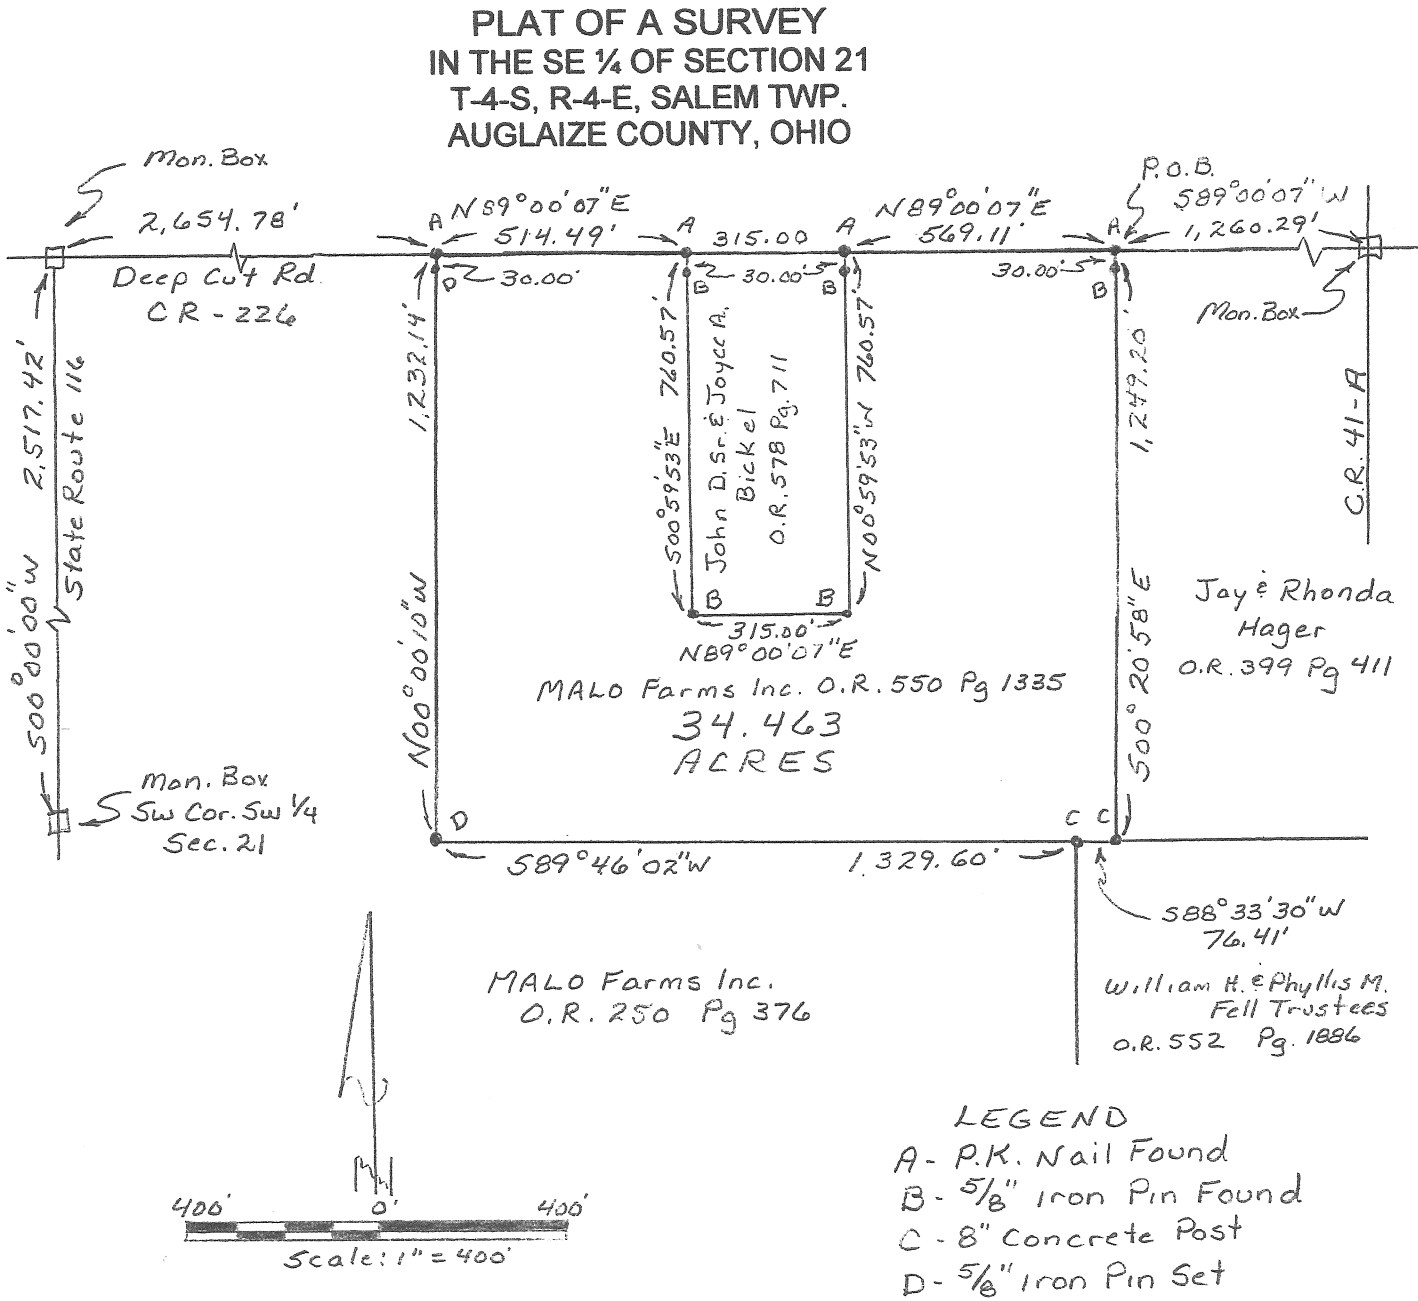 PLAT OF A SURVEY
IN THE SE ¼ OF SECTION 21
T-4-S, R-4-E, SALEM TWP.
AUGLAIZE COUNTY, OHIO
Mon. Box
2,654.78'
A
N89°00'07"E
514.49'
A
315.00
A
N89°00'07"E
569.11'
P.O.B.
A
S89°00'07"W
1,260.29'
Deep Cut Rd.
CR-226
D
30.00'
B
30.00'
B
30.00'
B
Mon. Box
2,517.42'
S00°00'00"W
State Route 116
1,232.14'
N00°00'10"W
760.57'
S00°59'53"E
John D. Sr. & Joyce A.
Bickel
O.R. 578 Pg. 711
N00°59'53"W 760.57'
1,249.20'
S00°20'58"E
C.R. 41-A
B
B
315.00'
N89°00'07"E
Jay & Rhonda
Hager
O.R. 399 Pg 411
MALO Farms Inc. O.R. 550 Pg 1335
34.463
ACRES
Mon. Box
SW Cor. SW 1/4
Sec. 21
D
C
C
S89°46'02"W
1,329.60'
S88°33'30"W
76.41'
MALO Farms Inc.
O.R. 250 Pg 376
William H. & Phyllis M.
Fell Trustees
O.R. 552 Pg. 1886
N
400'
0'
400'
Scale: 1" = 400'
LEGEND
A- P.K. Nail Found
B- 5/8" Iron Pin Found
C- 8" Concrete Post
D- 5/8" Iron Pin Set